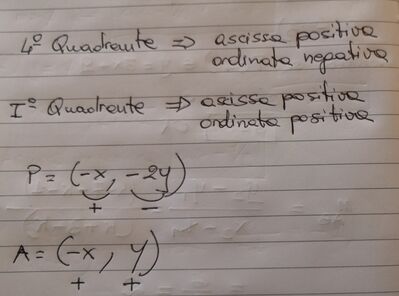 4º Quadrante => ascissa positiva
ordinata negativa
Iº Quadrante => ascissa positiva
ordinata positiva
P = (-x, -2y)
+ -
A = (-x, y)
+ +